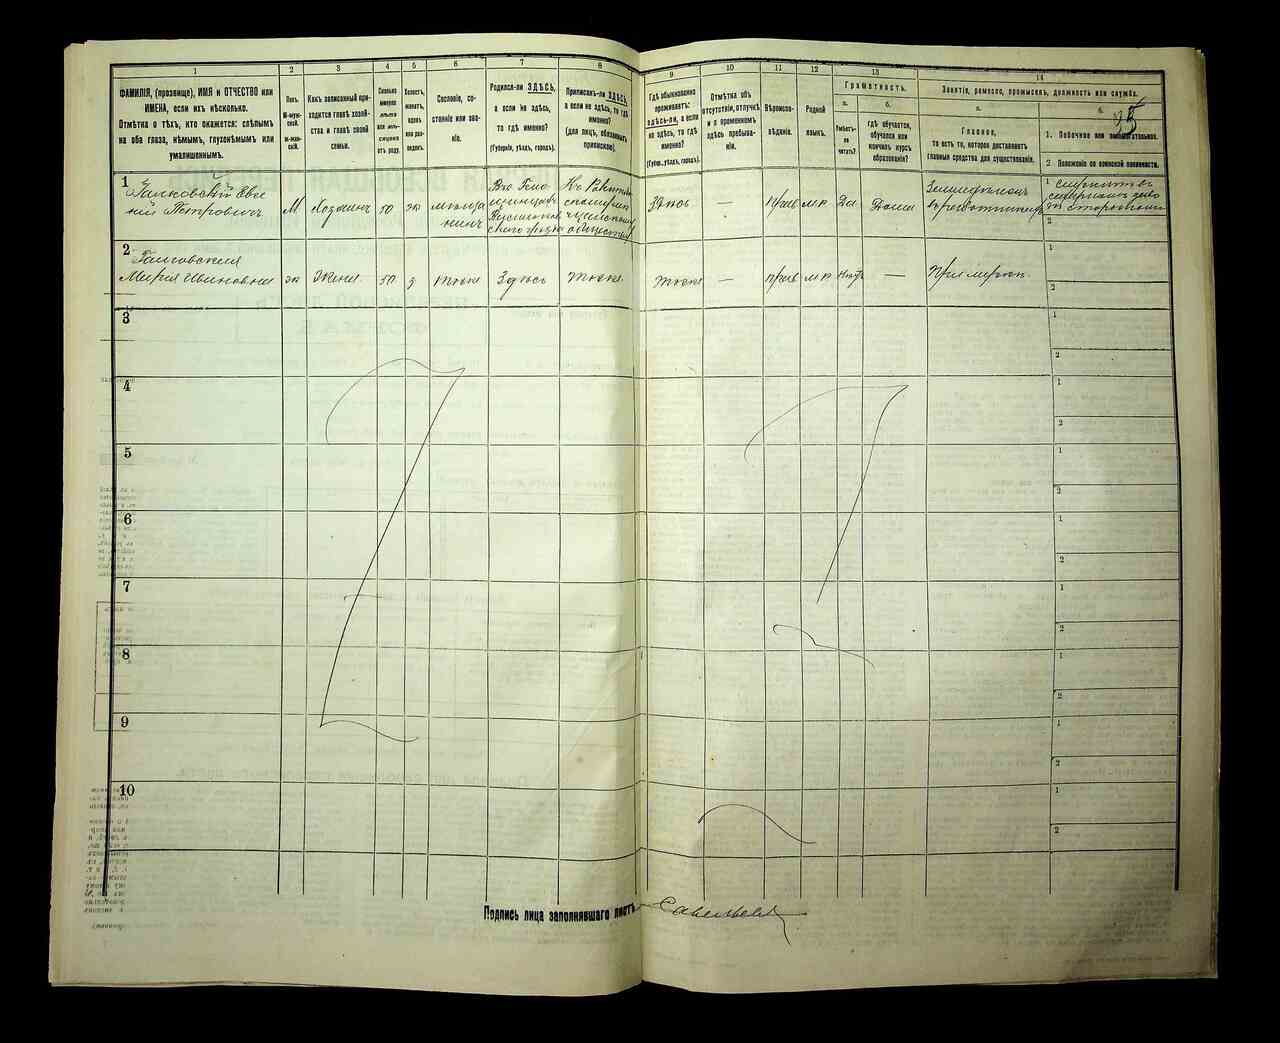 1 2 3 4 5 6 7 8 9 10 11 12 13 14
ФАМИЛІЯ, (прозвище), ИМЯ и ОТЧЕСТВО или
ИМЕНА, если ихъ нѣсколько.
Отмѣтка о тѣхъ, кто окажется: слѣпымъ
на оба глаза, нѣмымъ, глухонѣмымъ или
умалишеннымъ.
Полъ.
М-муж-
ской.
Ж-жен-
скій.
Какъ записанный при-
ходится главѣ хозяй-
ства и главѣ своей
семьи.
Сколько
минуло
лѣтъ
или мѣ-
сяцевъ
отъ роду.
Холостъ,
женатъ,
вдовъ
или раз-
веденъ.
Сословіе, со-
стояніе или зва-
ніе.
Родился-ли ЗДѢСЬ,
а если не здѣсь,
то гдѣ именно?
(Губернія, уѣздъ, городъ).
Приписанъ-ли ЗДѢСЬ,
а если не здѣсь, то гдѣ
именно?
(для лицъ, обязанныхъ
припискою).
Гдѣ обыкновенно
проживаетъ:
здѣсь-ли, а если
не здѣсь, то гдѣ
именно?
(Губерн., уѣздъ, городъ).
Отмѣтка объ
отсутствіи, отлучкѣ
и о временномъ
здѣсь пребыва-
ніи.
Вѣроиспо-
вѣданіе.
Родной
языкъ.
Грамотность.
а.
Умѣетъ-
ли
читать?
б.
гдѣ обучается,
обучался или
кончилъ курсъ
образованія?
Занятіе, ремесло, промыселъ, должность или служба.
а.
Главное,
то есть то, которое доставляетъ
главныя средства для существованія.
б.
25
1. Побочное или вспомогательное.
2 Положеніе по воинской повинности.
1
Галковскій Евге
ній Петровичъ
М
Хозяинъ
50
ж
мѣща
нинъ
Здѣсь
—
прав
м р
Да
Дома
Земледѣлецъ
1
2
2
Галковская
Марія Ивановна
ж
Жена
50
з
тоже
Здѣсь
тоже
тоже
—
прав
м р
Нѣтъ
—
При мужѣ
1
2
3
1
2
4
1
2
5
1
2
6
1
2
7
1
2
8
1
2
9
1
2
10
1
2
Подпись лица заполнявшаго листъ